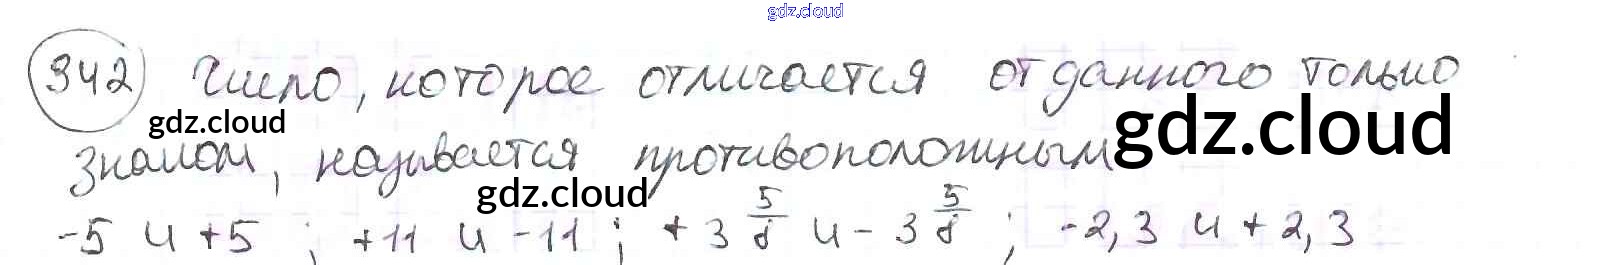 gdz.cloud
342 Число, которое отличается от данного только
gdz.cloud gdz.cloud
знаком, называется противоположным
gdz.cloud
-5 и +5 ; +11 и -11 ; +3 5/8 и -3 5/8 ; -2,3 и +2,3